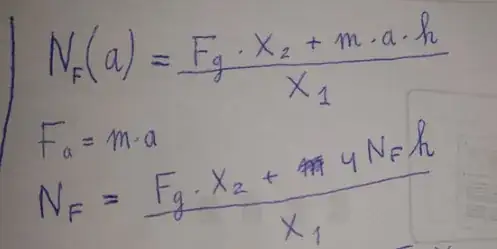 N_F(a) = (F_g · X_2 + m · a · h) / X_1
F_a = m · a
N_F = (F_g · X_2 + 4 N_F h) / X_1